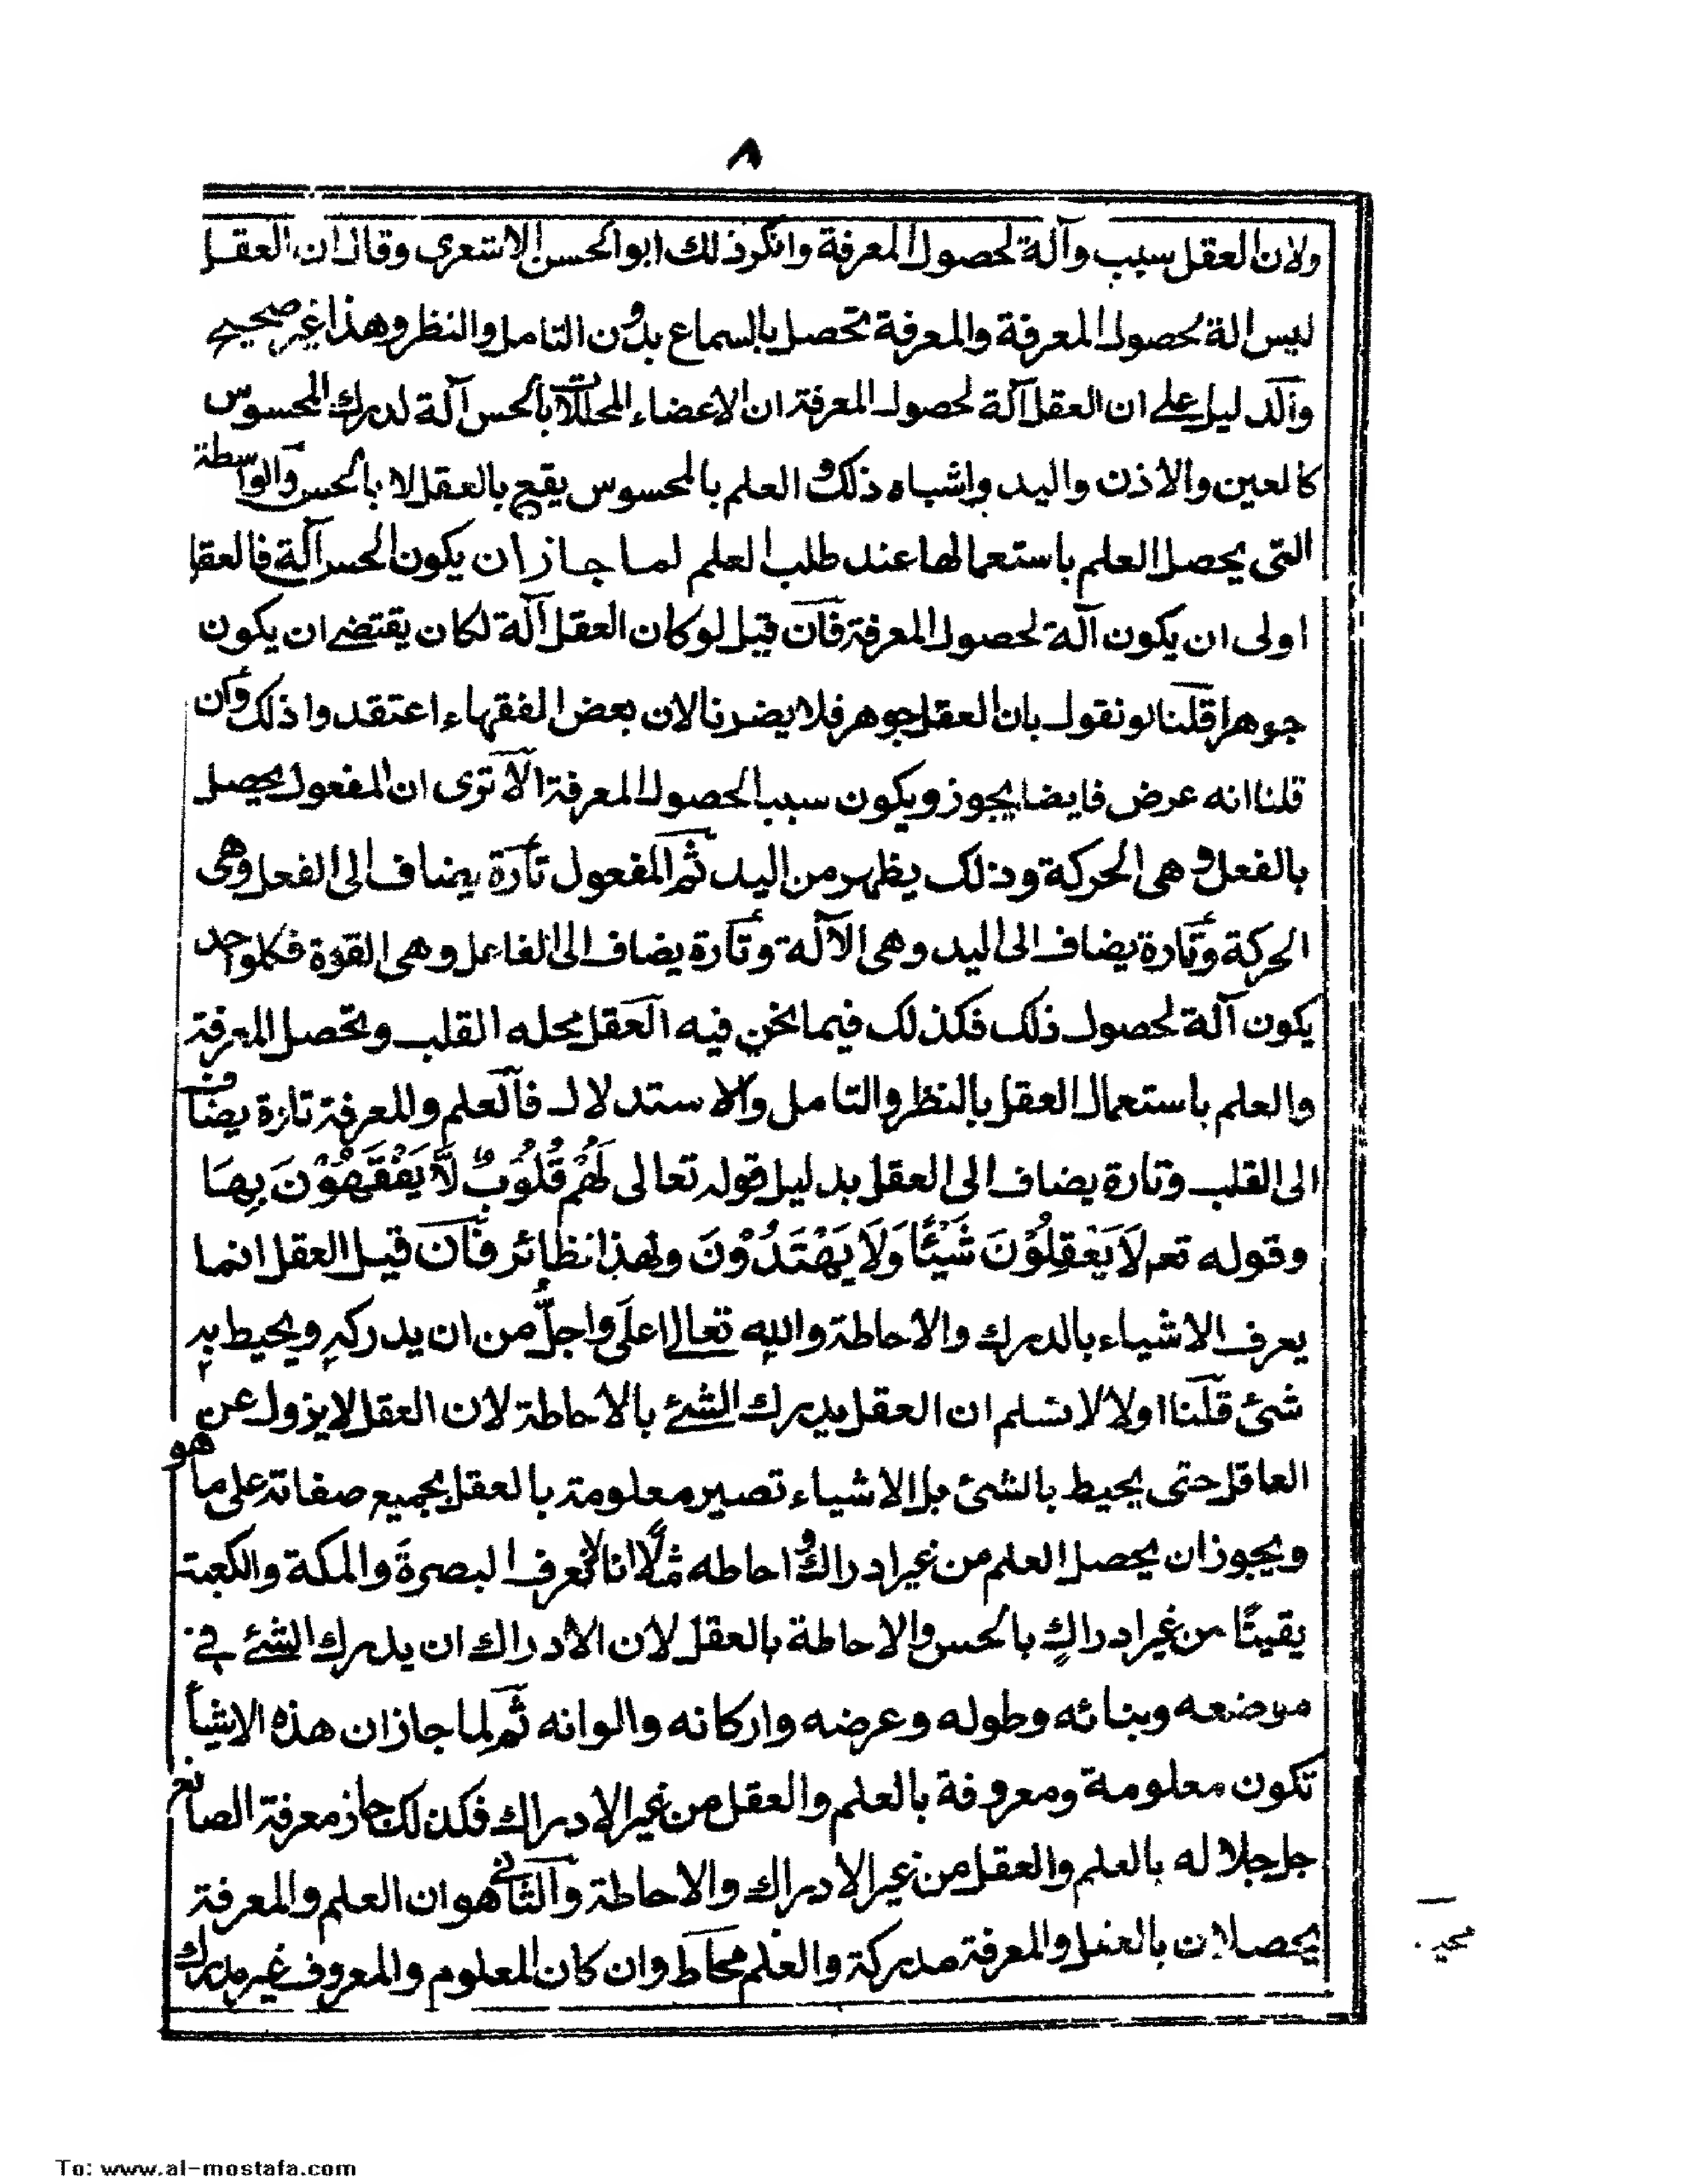 ٨
ولان العقل سبب وآلة لحصول المعرفة وانكر ذلك ابوالحسن الاشعرى وقال ان العقل
ليس الة لحصول المعرفة والمعرفة تحصل بالسماع بدون التامل والنظر وهذا غير صحيح
والدليل على ان العقل آلة لحصول المعرفة ان الاعضاء بالحس آلة لدرك المحسوس
كالعين والاذن واليد واشباه ذلك والعلم بالمحسوس يقع بالعقل لا بالحس والواسطة
التى يحصل العلم باستعمالها عند طلب العلم لما جاز ان يكون الحس آلة فالعقل
اولى ان يكون آلة لحصول المعرفة فان قيل لو كان العقل آلة لكان يقتضى ان يكون
جوهرا قلنا لو نقول بان العقل جوهر فلا يضرنا لان بعض الفقهاء اعتقدوا ذلك وان
قلنا انه عرض فايضا يجوز ويكون سببا لحصول المعرفة الا ترى ان المفعول يحصل
بالفعل وهى الحركة وذلك يظهر من اليد ثم المفعول تارة يضاف الى الفعل وهى
الحركة وتارة يضاف الى اليد وهى الآلة وتارة يضاف الى الفاعل وهى القوة فكل واحد
يكون آلة لحصول ذلك فكذلك فيما نحن فيه العقل محله القلب وتحصل المعرفة
والعلم باستعمال العقل بالنظر والتامل والاستدلال فالعلم والمعرفة تارة يضاف
الى القلب وتارة يضاف الى العقل بدليل قوله تعالى لَهُمْ قُلُوبٌ لَّا يَفْقَهُوْنَ بِهَا
وقوله تعم لَا يَعْقِلُوْنَ شَيْئًا وَلَا يَهْتَدُوْنَ ولهذا نظائر فان قيل العقل انما
يعرف الاشياء بالدرك والاحاطة والله تعالى اعلى واجلُّ من ان يدركه ويحيط به
شئ قلنا اولا لا نسلم ان العقل يدرك الشئ بالاحاطة لان العقل لا يزول عن
العاقل حتى يحيط بالشئ بل الاشياء تصير معلومة بالعقل بجميع صفاته على ما هو
ويجوز ان يحصل العلم من غير ادراك واحاطه مثلًا انا نعرف البصرةَ والمكة والكعبة
يقينًا من غير ادراكٍ بالحس والاحاطة بالعقل لان الادراك ان يدرك الشئ فى
موضعه وبنائه وطوله وعرضه واركانه والوانه ثم لما جاز ان هذه الاشيأ
تكون معلومة ومعروفة بالعلم والعقل من غير الادراك فكذلك جاز معرفة الصانع
جل جلاله بالعلم والعقل من غير الادراك والاحاطة والثانى هو ان العلم والمعرفة
يحصلان بالعقل والمعرفة مدركة والعلم محاط وان كان المعلوم والمعروف غير مدرك
To: www.al-mostafa.com